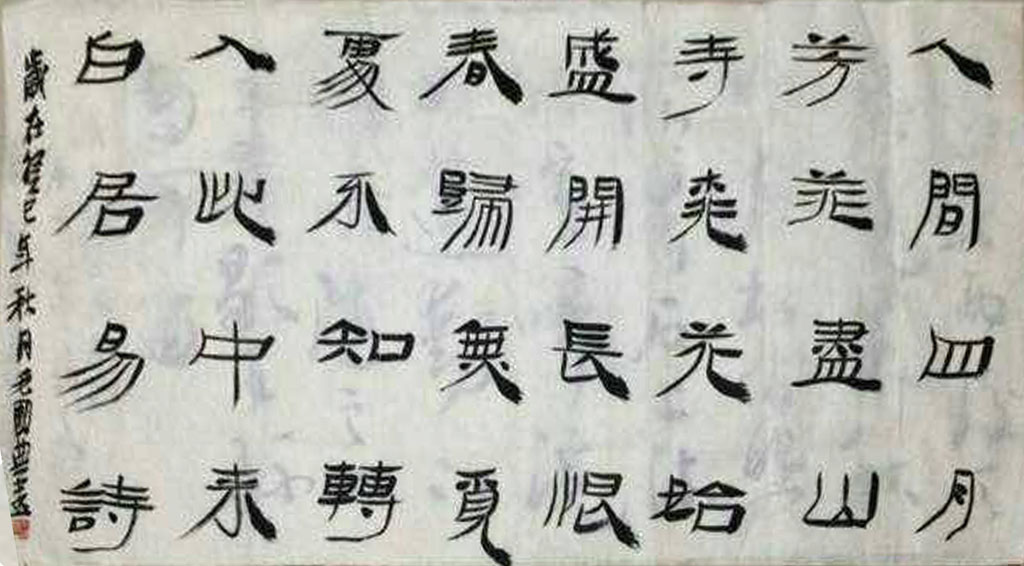 人間四月
芳菲盡山
寺桃花始
盛開長恨
春歸無覓
處不知轉
入此中来
白居易詩
歲在癸巳年秋月